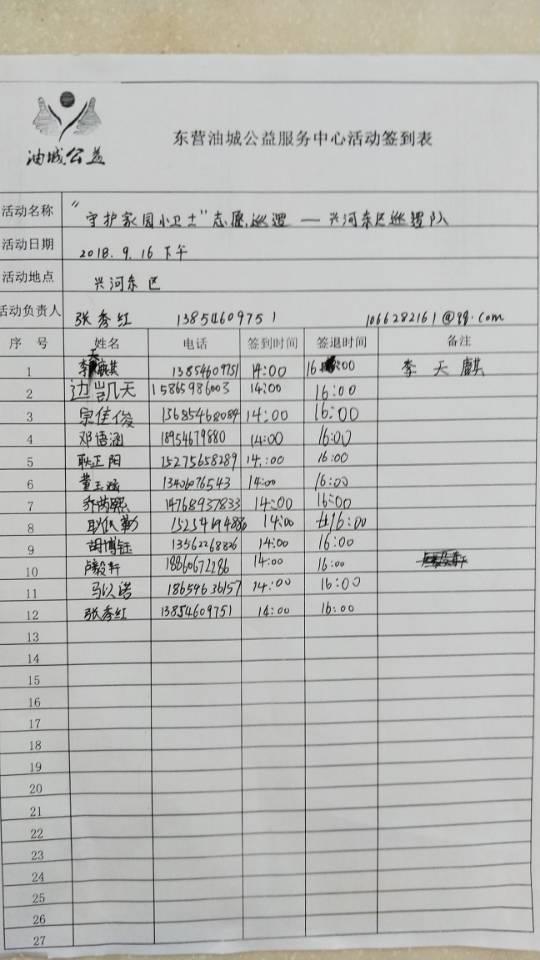 油城公益
东营油城公益服务中心活动签到表
活动名称 "守护家园小卫士"志愿巡逻 — 兴河东区巡逻队
活动日期 2018.9.16 下午
活动地点 兴河东区
活动负责人 张秀红 13854609751 1066282161@qq.com
序号 姓名 电话 签到时间 签退时间 备注
1 李天麒 13854609751 14:00 16:00 李天麒
2 边凯天 15865986003 14:00 16:00
3 宗佳俊 13685468089 14:00 16:00
4 邓语涵 18954679880 14:00 16:00
5 耿正阳 15275658289 14:00 16:00
6 14:00 16:00
7 乔芮熙 14768937833 14:00 16:00
8 14:00 16:00
9 胡博钰 13562268826 14:00 16:00
10 卢毅轩 18860672286 14:00 16:00
11 马以诺 18654636157 14:00 16:00
12 张秀红 13854609751 14:00 16:00
13
14
15
16
17
18
19
20
21
22
23
24
25
26
27